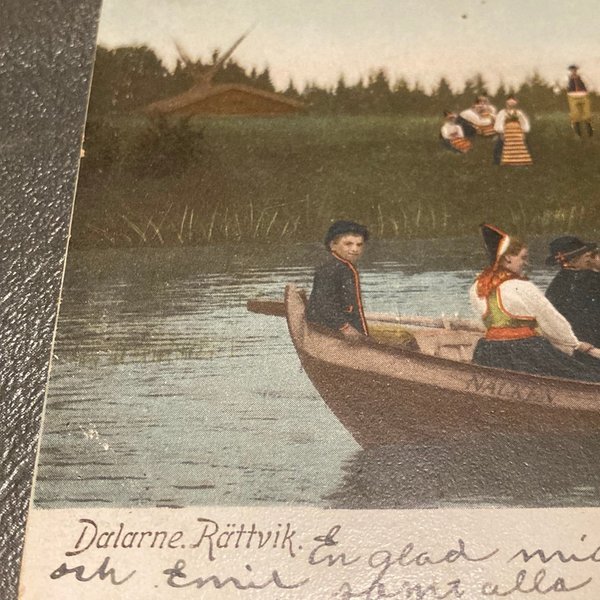 NÄCKEN
Dalarne. Rättvik.
En glad mid
och Emil samt alla